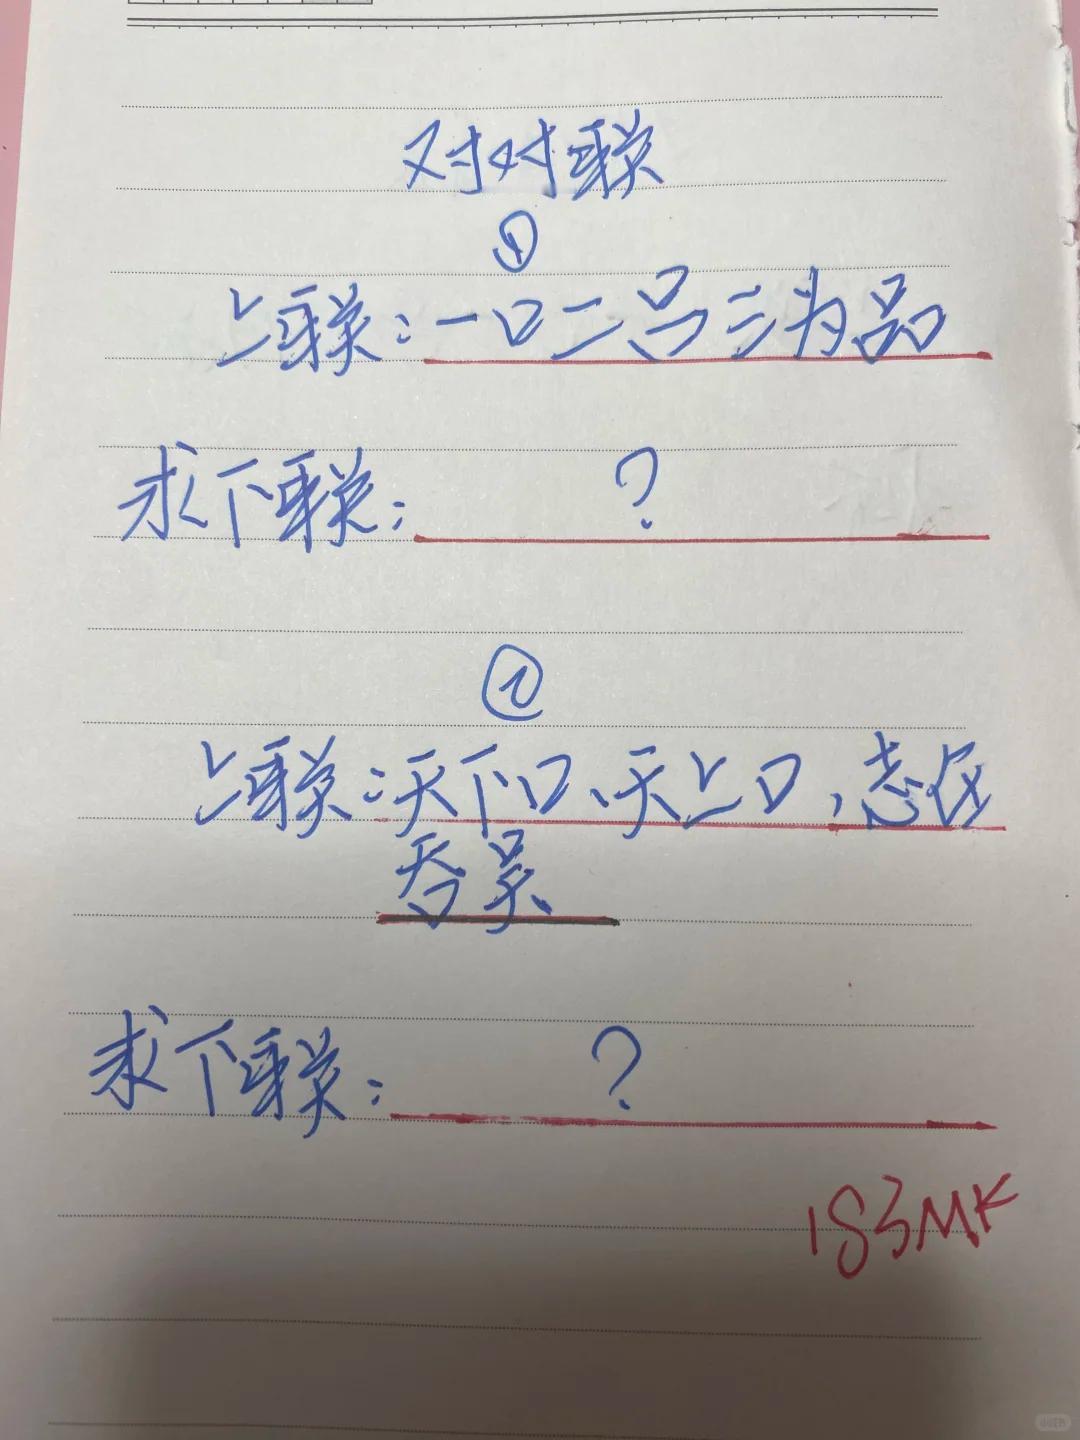 对对联
①
上联:一口二吕三为品
求下联:?
②
上联:天下口、天上口,志在
吞吴
求下联:?
183MK